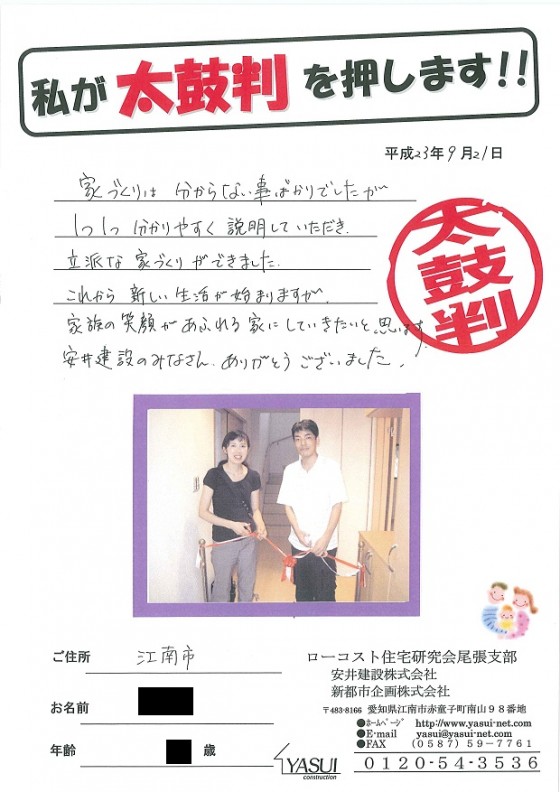 私が太鼓判を押します!!
平成23年9月21日
家づくりは 分からない事ばかりでしたが
1つ1つ 分かりやすく 説明していただき.
立派な 家づくり ができました.
これから 新しい 生活が 始まりますが.
家族の笑顔があふれる家にしていきたいと思います.
安井建設のみなさん. ありがとう ございました.
太鼓判
ご住所 江南市
お名前
年齢 歳
YASUI
construction
ローコスト住宅研究会尾張支部
安井建設株式会社
新都市企画株式会社
〒483-8166 愛知県江南市赤童子町南山98番地
●ホームページ http://www.yasui-net.com
●E-mail yasui@yasui-net.com
●FAX (0587)59-7761
0120-54-3536